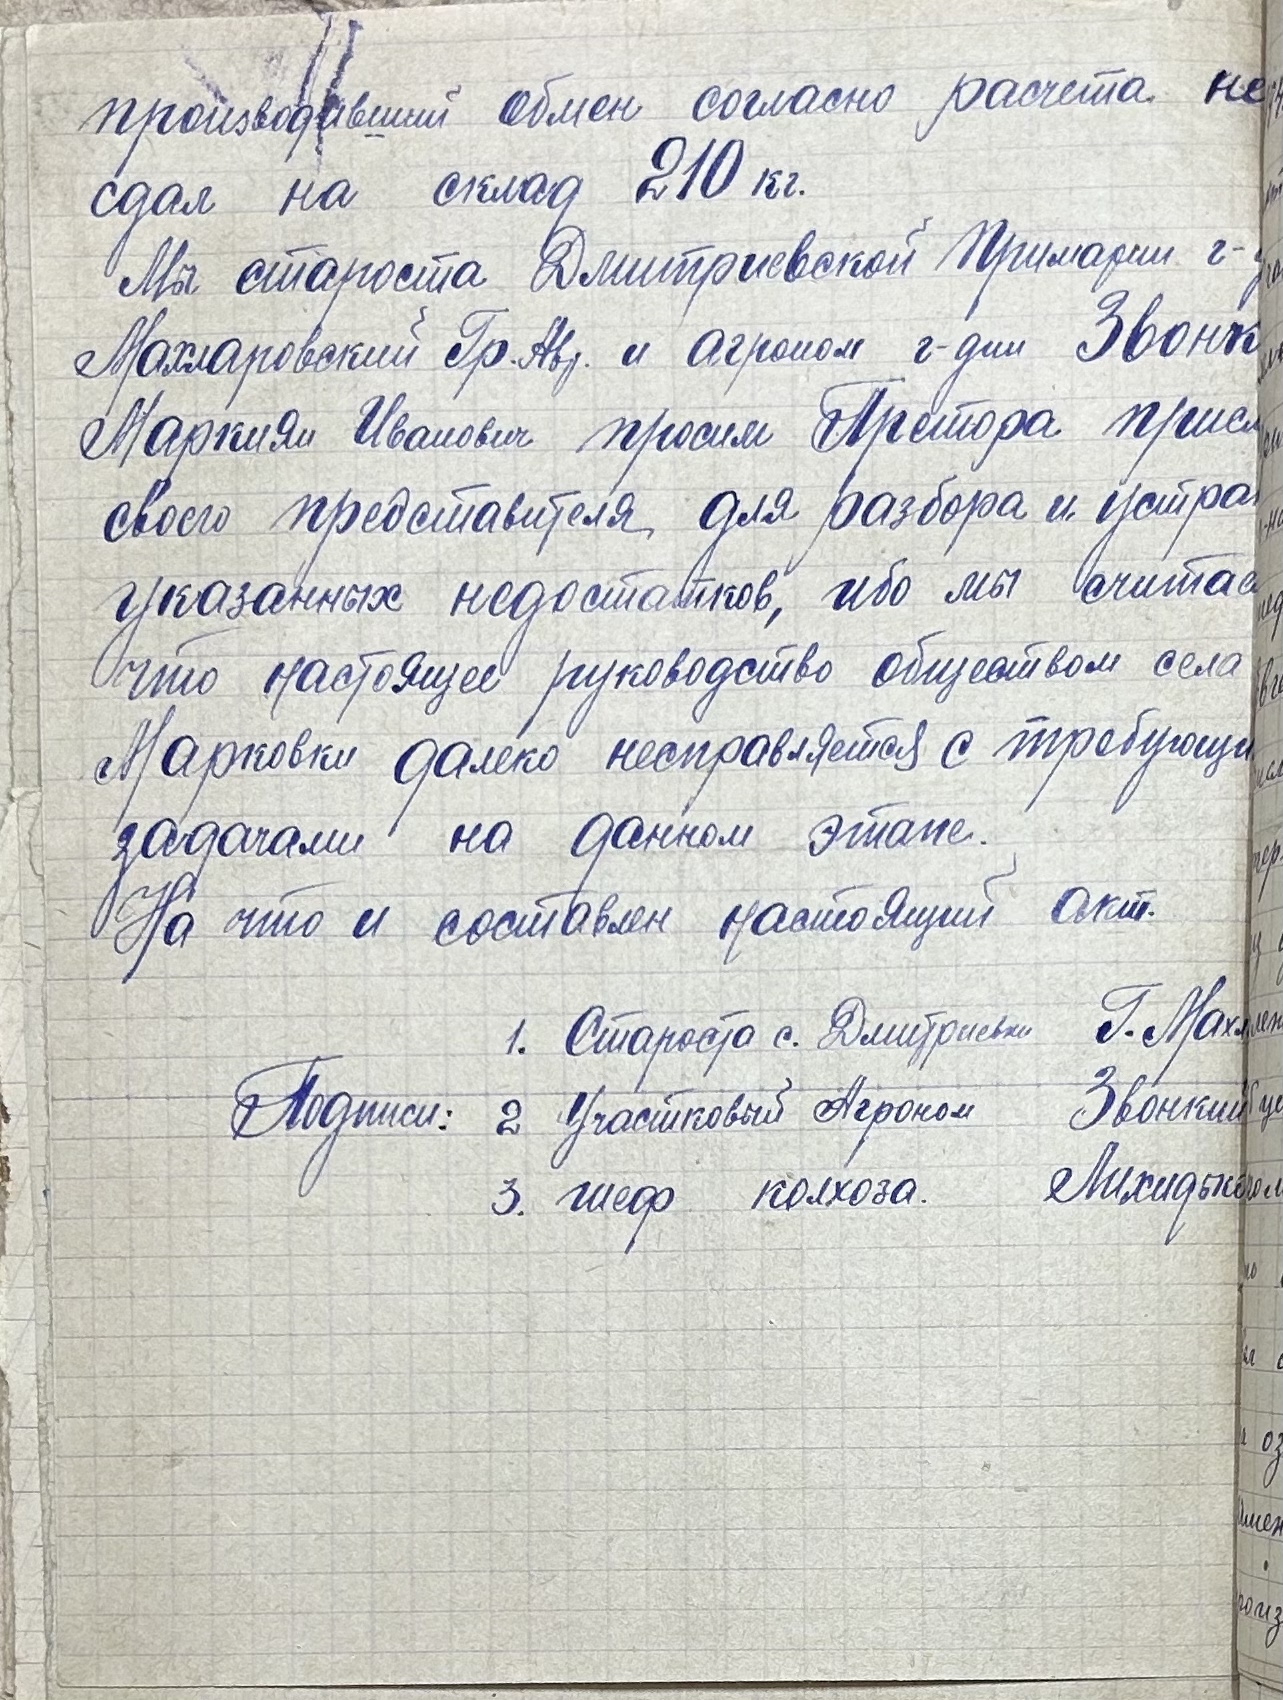 производивший обмен согласно расчета не
сдал на склад 210 кг.
Мы староста Дмитриевской Примарии г-
Махларовский Гр. Авг. и агроном г-дин Звонк
Маркиян Иванович просим Претора присл
своего представителя для разбора и устра
указанных недостатков, ибо мы считае
что настоящее руководство обществом села
Марковки далеко несправляется с требующи
задачами на данном этапе.
На что и составлен настоящий акт.
1. Староста с. Дмитриевки Г. Махл
Подписи: 2 Участковый Агроном Звонкий
3. шеф колхоза. Лихидьк